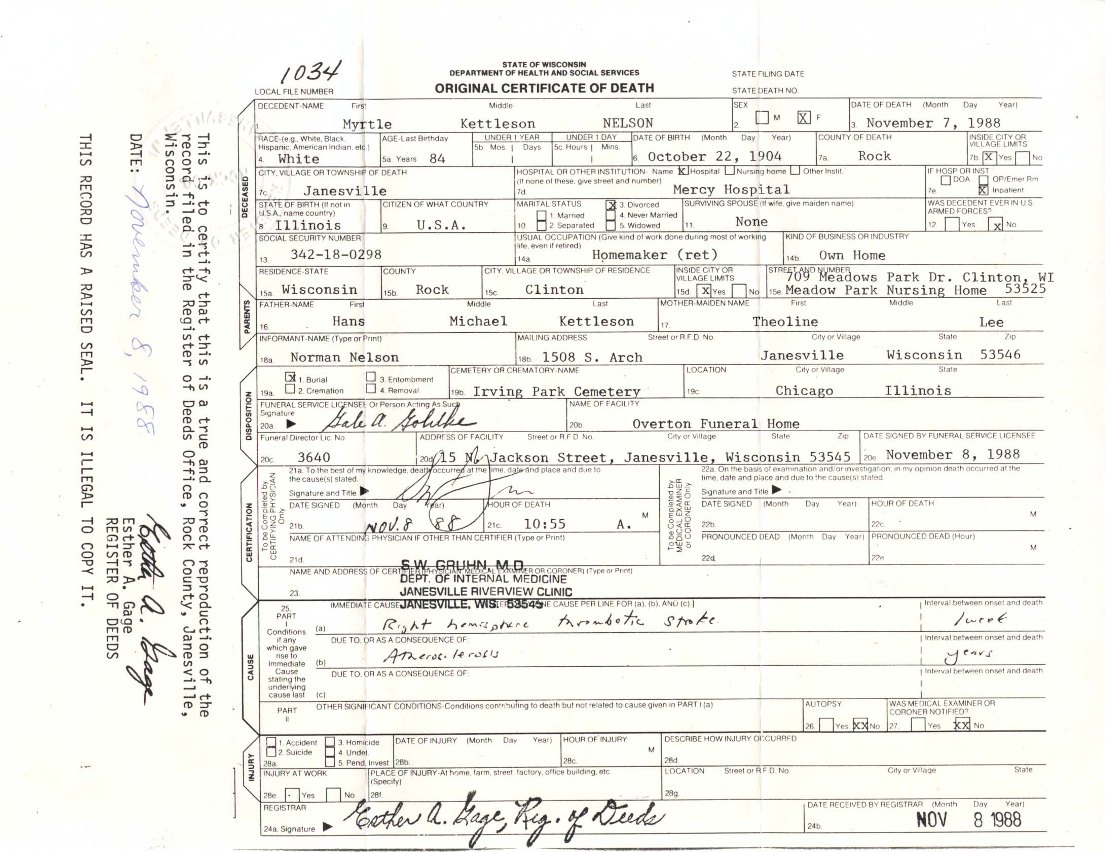 1034
STATE OF WISCONSIN
DEPARTMENT OF HEALTH AND SOCIAL SERVICES
ORIGINAL CERTIFICATE OF DEATH
STATE FILING DATE
LOCAL FILE NUMBER
STATE DEATH NO.
DECEDENT-NAME First Middle Last
SEX
DATE OF DEATH (Month Day Year)
1. Myrtle Kettleson NELSON
2. M X F
3. November 7, 1988
RACE-(e.g., White, Black Hispanic, American Indian, etc.)
4. White
AGE-Last Birthday
5a. Years 84
UNDER 1 YEAR
5b. Mos. Days
UNDER 1 DAY
5c. Hours Mins.
DATE OF BIRTH (Month Day Year)
6. October 22, 1904
COUNTY OF DEATH
7a. Rock
INSIDE CITY OR VILLAGE LIMITS
7b. X Yes No
CITY, VILLAGE OR TOWNSHIP OF DEATH
7c. Janesville
HOSPITAL OR OTHER INSTITUTION- Name X Hospital Nursing home Other Instit.
(If none of these, give street and number)
7d. Mercy Hospital
IF HOSP OR INST
DOA OP/Emer Rm
7e. X Inpatient
STATE OF BIRTH (If not in U.S.A., name country)
8. Illinois
CITIZEN OF WHAT COUNTRY
9. U.S.A.
MARITAL STATUS
X 3. Divorced
1. Married 4. Never Married
10. 2. Separated 5. Widowed
SURVIVING SPOUSE (If wife, give maiden name)
11. None
WAS DECEDENT EVER IN U.S. ARMED FORCES?
12. Yes X No
SOCIAL SECURITY NUMBER
13. 342-18-0298
USUAL OCCUPATION (Give kind of work done during most of working life, even if retired)
14a. Homemaker (ret)
KIND OF BUSINESS OR INDUSTRY
14b. Own Home
RESIDENCE-STATE
15a. Wisconsin
COUNTY
15b. Rock
CITY, VILLAGE OR TOWNSHIP OF RESIDENCE
15c. Clinton
INSIDE CITY OR VILLAGE LIMITS
15d. X Yes No
STREET AND NUMBER
709 Meadows Park Dr. Clinton, WI
15e. Meadow Park Nursing Home 53525
FATHER-NAME First Middle Last
16. Hans Michael Kettleson
MOTHER-MAIDEN NAME First Middle Last
17. Theoline Lee
INFORMANT-NAME (Type or Print)
18a. Norman Nelson
MAILING ADDRESS Street or R.F.D. No. City or Village State Zip
18b. 1508 S. Arch Janesville Wisconsin 53546
X 1. Burial 3. Entombment
19a. 2. Cremation 4. Removal
CEMETERY OR CREMATORY-NAME
19b. Irving Park Cemetery
LOCATION City or Village State
19c. Chicago Illinois
FUNERAL SERVICE LICENSEE Or Person Acting As Such
Signature
20a. Gale A. Gohlke
NAME OF FACILITY
20b. Overton Funeral Home
Funeral Director Lic. No.
20c. 3640
ADDRESS OF FACILITY Street or R.F.D. No. City or Village State Zip
20d. 15 N. Jackson Street, Janesville, Wisconsin 53545
DATE SIGNED BY FUNERAL SERVICE LICENSEE
20e. November 8, 1988
21a. To the best of my knowledge, death occurred at the time, date and place and due to the cause(s) stated.
Signature and Title
22a. On the basis of examination and/or investigation, in my opinion death occurred at the time, date and place and due to the cause(s) stated.
Signature and Title
To be Completed by CERTIFYING PHYSICIAN Only
To be Completed by MEDICAL EXAMINER or CORONER Only
DATE SIGNED (Month Day Year)
21b. NOV. 8 88
HOUR OF DEATH
21c. 10:55 A. M
DATE SIGNED (Month Day Year)
22b.
HOUR OF DEATH
22c. M
NAME OF ATTENDING PHYSICIAN IF OTHER THAN CERTIFIER (Type or Print)
21d.
PRONOUNCED DEAD (Month Day Year)
22d.
PRONOUNCED DEAD (Hour)
22e. M
NAME AND ADDRESS OF CERTIFIER (PHYSICIAN, MEDICAL EXAMINER OR CORONER) (Type or Print)
S.W. GRUHN, M.D.
DEPT. OF INTERNAL MEDICINE
23. JANESVILLE RIVERVIEW CLINIC
JANESVILLE, WIS. 53545
25. PART I
Conditions if any which gave rise to Immediate Cause stating the underlying cause last
IMMEDIATE CAUSE ONE CAUSE PER LINE FOR (a), (b), AND (c)
Interval between onset and death
(a) Right hemisphere thrombotic stroke 1 week
DUE TO, OR AS A CONSEQUENCE OF:
Interval between onset and death
(b) Atherosclerosis years
DUE TO, OR AS A CONSEQUENCE OF:
Interval between onset and death
(c)
PART II
OTHER SIGNIFICANT CONDITIONS-Conditions contributing to death but not related to cause given in PART I (a)
AUTOPSY
26. Yes XX No
WAS MEDICAL EXAMINER OR CORONER NOTIFIED?
27. Yes XX No
1. Accident 3. Homicide
2. Suicide 4. Undet.
28a. 5. Pend. Invest
DATE OF INJURY (Month Day Year)
28b.
HOUR OF INJURY
28c. M
DESCRIBE HOW INJURY OCCURRED
28d.
INJURY AT WORK
28e. Yes No
PLACE OF INJURY-At home, farm, street, factory, office building, etc. (Specify)
28f.
LOCATION Street or R.F.D. No. City or Village State
28g.
REGISTRAR
24a. Signature Esther A. Gage, Reg. of Deeds
DATE RECEIVED BY REGISTRAR (Month Day Year)
24b. NOV 8 1988
DECEASED
PARENTS
DISPOSITION
CERTIFICATION
CAUSE
INJURY
This is to certify that this is a true and correct reproduction of the
record filed in the Register of Deeds Office, Rock County, Janesville,
Wisconsin.
DATE: November 8, 1988
Esther A. Gage
Esther A. Gage
REGISTER OF DEEDS
THIS RECORD HAS A RAISED SEAL. IT IS ILLEGAL TO COPY IT.